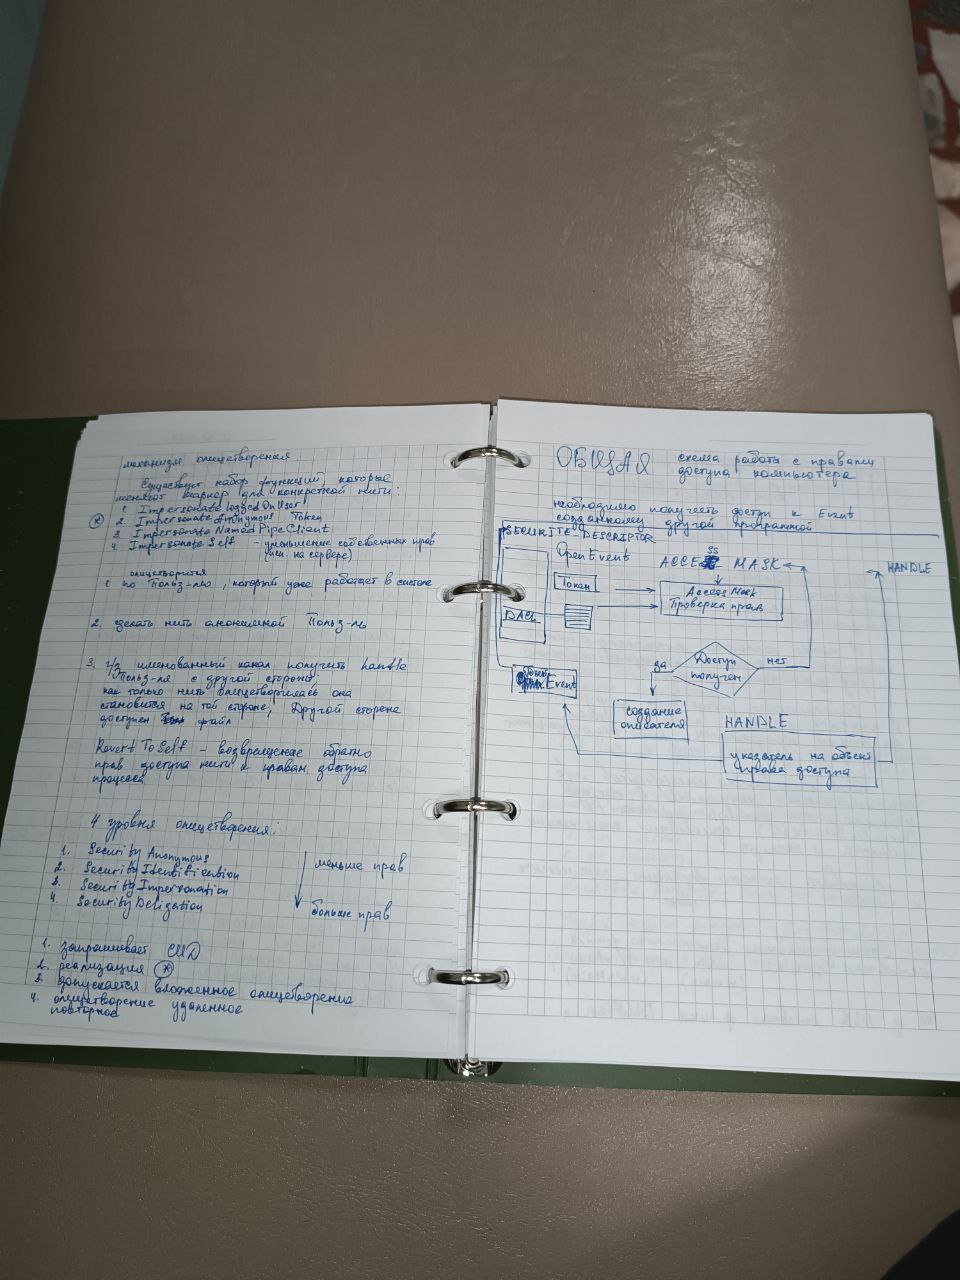 механизм олицетворения
Существует набор функций, которые
меняют маркер для конкретной нити:
1. Impersonate Logged On User
2. Impersonate Anonymous Token
3. Impersonate Named Pipe Client
4. Impersonate Self - уменьшение собственных прав
на сервере)
олицетворится
1. по Польз-лю, который уже работает в системе
2. сделать нить анонимной Польз-ль
3. ч/з именованный канал получить handle
Польз-ля с другой стороны
как только нить олицетворилась она
становится на той стороне, Другой стороне
доступен файл
Revert To Self - возвращение обратно
прав доступа нити к правам доступа
процесса
4 уровня олицетворения:
1. Security Anonymous
2. Security Identification
3. Security Impersonation
4. Security Deligation
меньше прав
больше прав
1. запрашивает СИД
2. реализация *
3. допускается вложенное олицетворение
4. олицетворение удаленное
повторное
ОБЩАЯ схема работы с правами
доступа компьютера
необходимо получить доступ к Event
созданному другой программой
SECURITE DESCRIPTOR
OpenEvent
ACCESS MASK
HANDLE
Токен
Access Mask
Проверка прав
DACL
да
Доступ
получен
нет
Event
создание
описателя
HANDLE
указатель на объект
права доступа